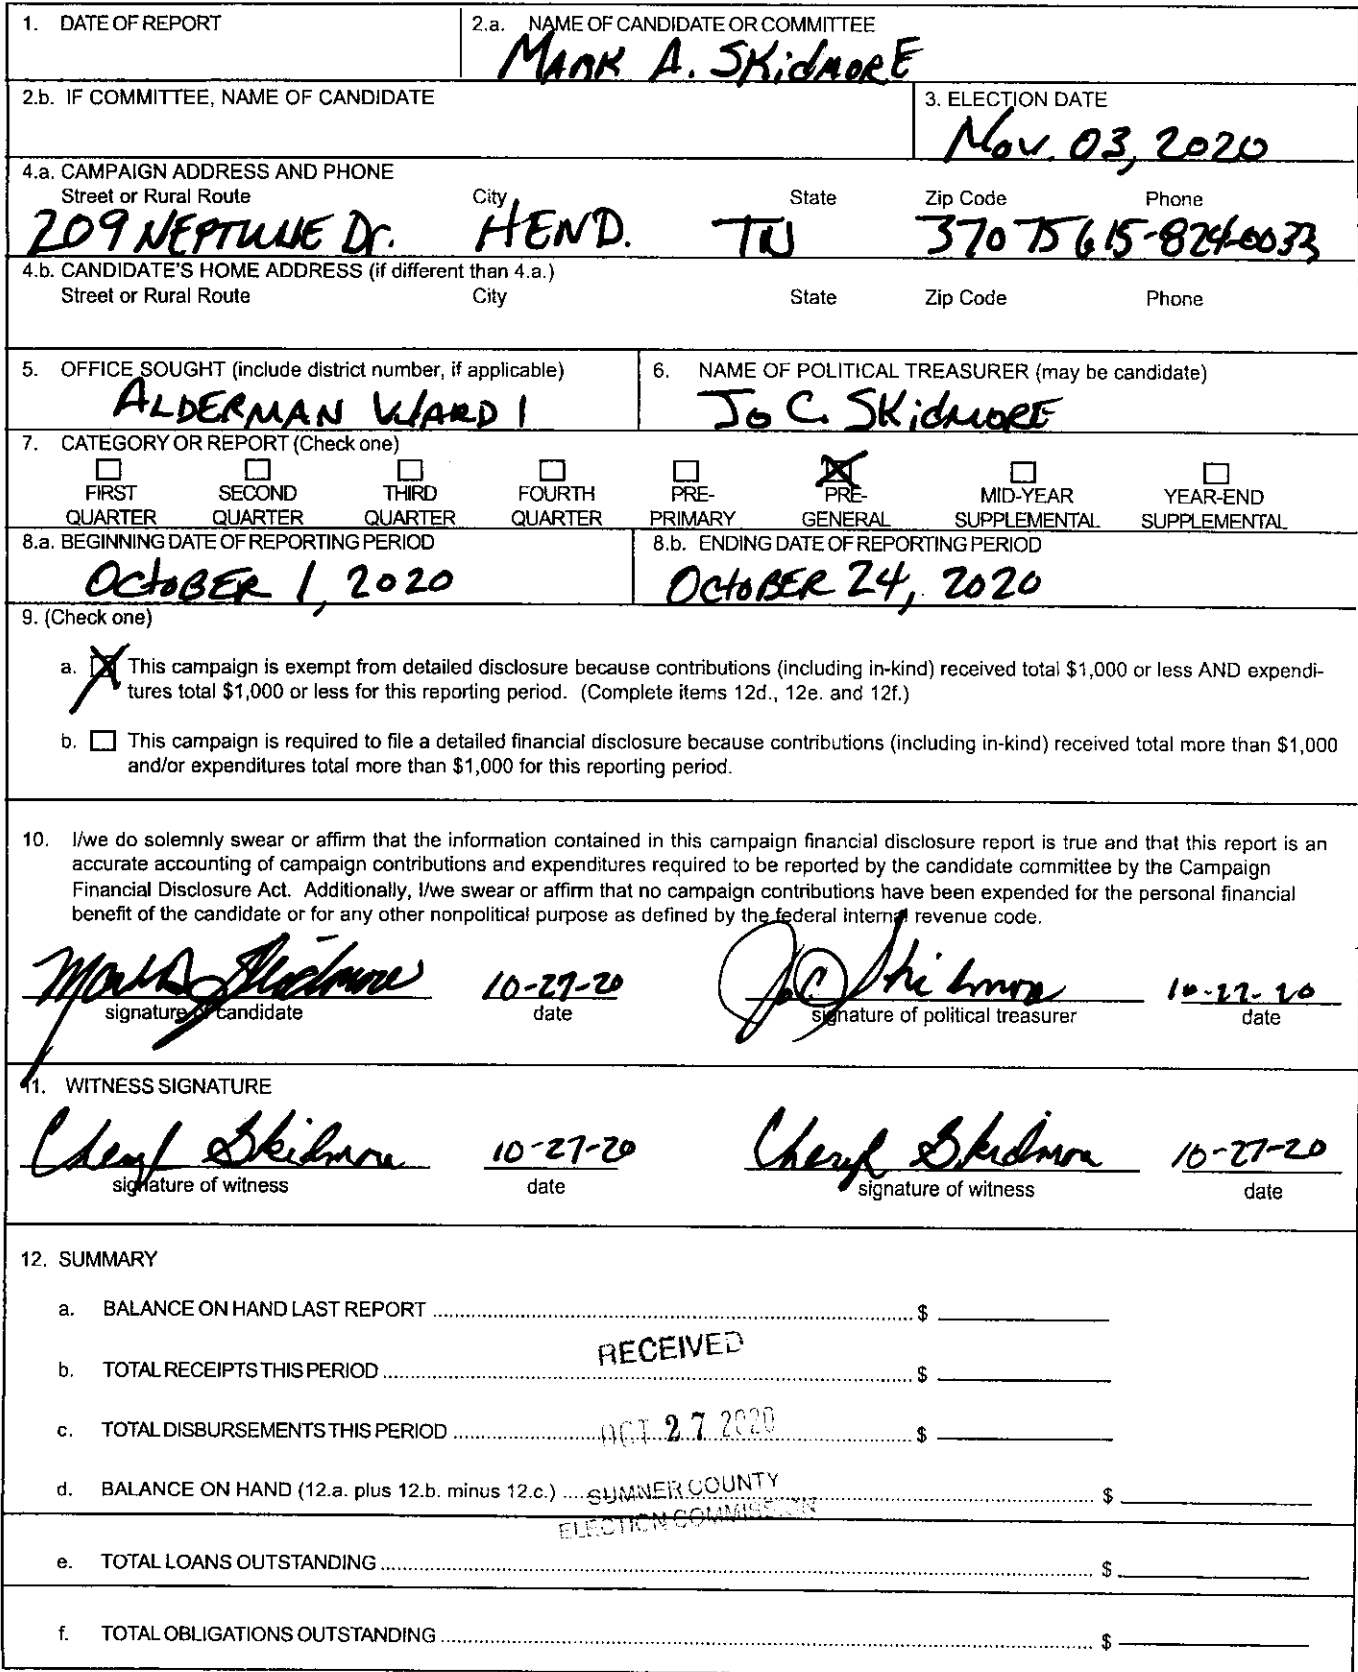 1. DATE OF REPORT
2.a. NAME OF CANDIDATE OR COMMITTEE
MARK A. SKidmoRE
2.b. IF COMMITTEE, NAME OF CANDIDATE
3. ELECTION DATE
Nov. 03, 2020
4.a. CAMPAIGN ADDRESS AND PHONE
Street or Rural Route City State Zip Code Phone
209 NEPTUNE Dr. HEND. TN 37075 615-824-0033
4.b. CANDIDATE'S HOME ADDRESS (if different than 4.a.)
Street or Rural Route City State Zip Code Phone
5. OFFICE SOUGHT (include district number, if applicable)
ALDERMAN WARD 1
6. NAME OF POLITICAL TREASURER (may be candidate)
Jo C. SKidmoRE
7. CATEGORY OR REPORT (Check one)
FIRST SECOND THIRD FOURTH PRE- PRE- MID-YEAR YEAR-END
QUARTER QUARTER QUARTER QUARTER PRIMARY GENERAL SUPPLEMENTAL SUPPLEMENTAL
8.a. BEGINNING DATE OF REPORTING PERIOD
OctoBER 1, 2020
8.b. ENDING DATE OF REPORTING PERIOD
OctoBER 24, 2020
9. (Check one)
a. This campaign is exempt from detailed disclosure because contributions (including in-kind) received total $1,000 or less AND expendi-
tures total $1,000 or less for this reporting period. (Complete items 12d., 12e. and 12f.)
b. This campaign is required to file a detailed financial disclosure because contributions (including in-kind) received total more than $1,000
and/or expenditures total more than $1,000 for this reporting period.
10. I/we do solemnly swear or affirm that the information contained in this campaign financial disclosure report is true and that this report is an
accurate accounting of campaign contributions and expenditures required to be reported by the candidate committee by the Campaign
Financial Disclosure Act. Additionally, I/we swear or affirm that no campaign contributions have been expended for the personal financial
benefit of the candidate or for any other nonpolitical purpose as defined by the federal internal revenue code.
Mark A Skidmore 10-27-20 Jo C Skidmore 10-27-20
signature of candidate date signature of political treasurer date
11. WITNESS SIGNATURE
Cheryl Skidmore 10-27-20 Cheryl Skidmore 10-27-20
signature of witness date signature of witness date
12. SUMMARY
a. BALANCE ON HAND LAST REPORT $
RECEIVED
b. TOTAL RECEIPTS THIS PERIOD $
c. TOTAL DISBURSEMENTS THIS PERIOD OCT 27 2020 $
d. BALANCE ON HAND (12.a. plus 12.b. minus 12.c.) SUMNER COUNTY $
ELECTION COMMISSION
e. TOTAL LOANS OUTSTANDING $
f. TOTAL OBLIGATIONS OUTSTANDING $